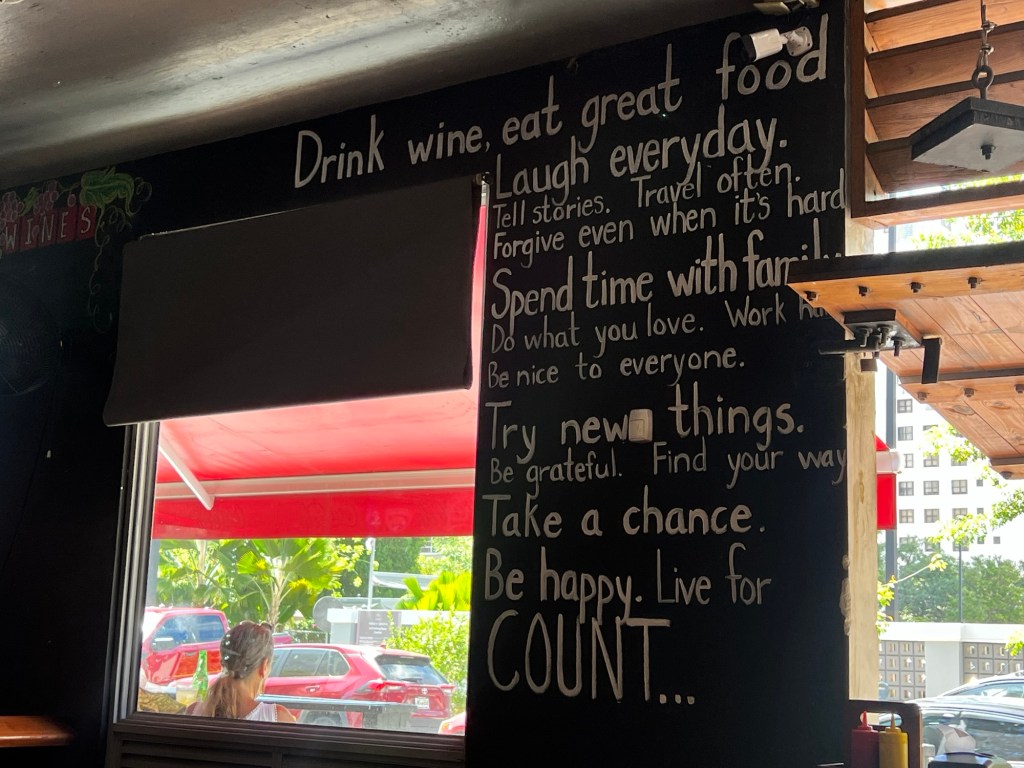 Drink wine, eat great food
WINES
Laugh everyday.
Tell stories. Travel often.
Forgive even when it's hard
Spend time with family
Do what you love. Work
Be nice to everyone.
Try new things.
Be grateful. Find your way
Take a chance.
Be happy. Live for
COUNT...